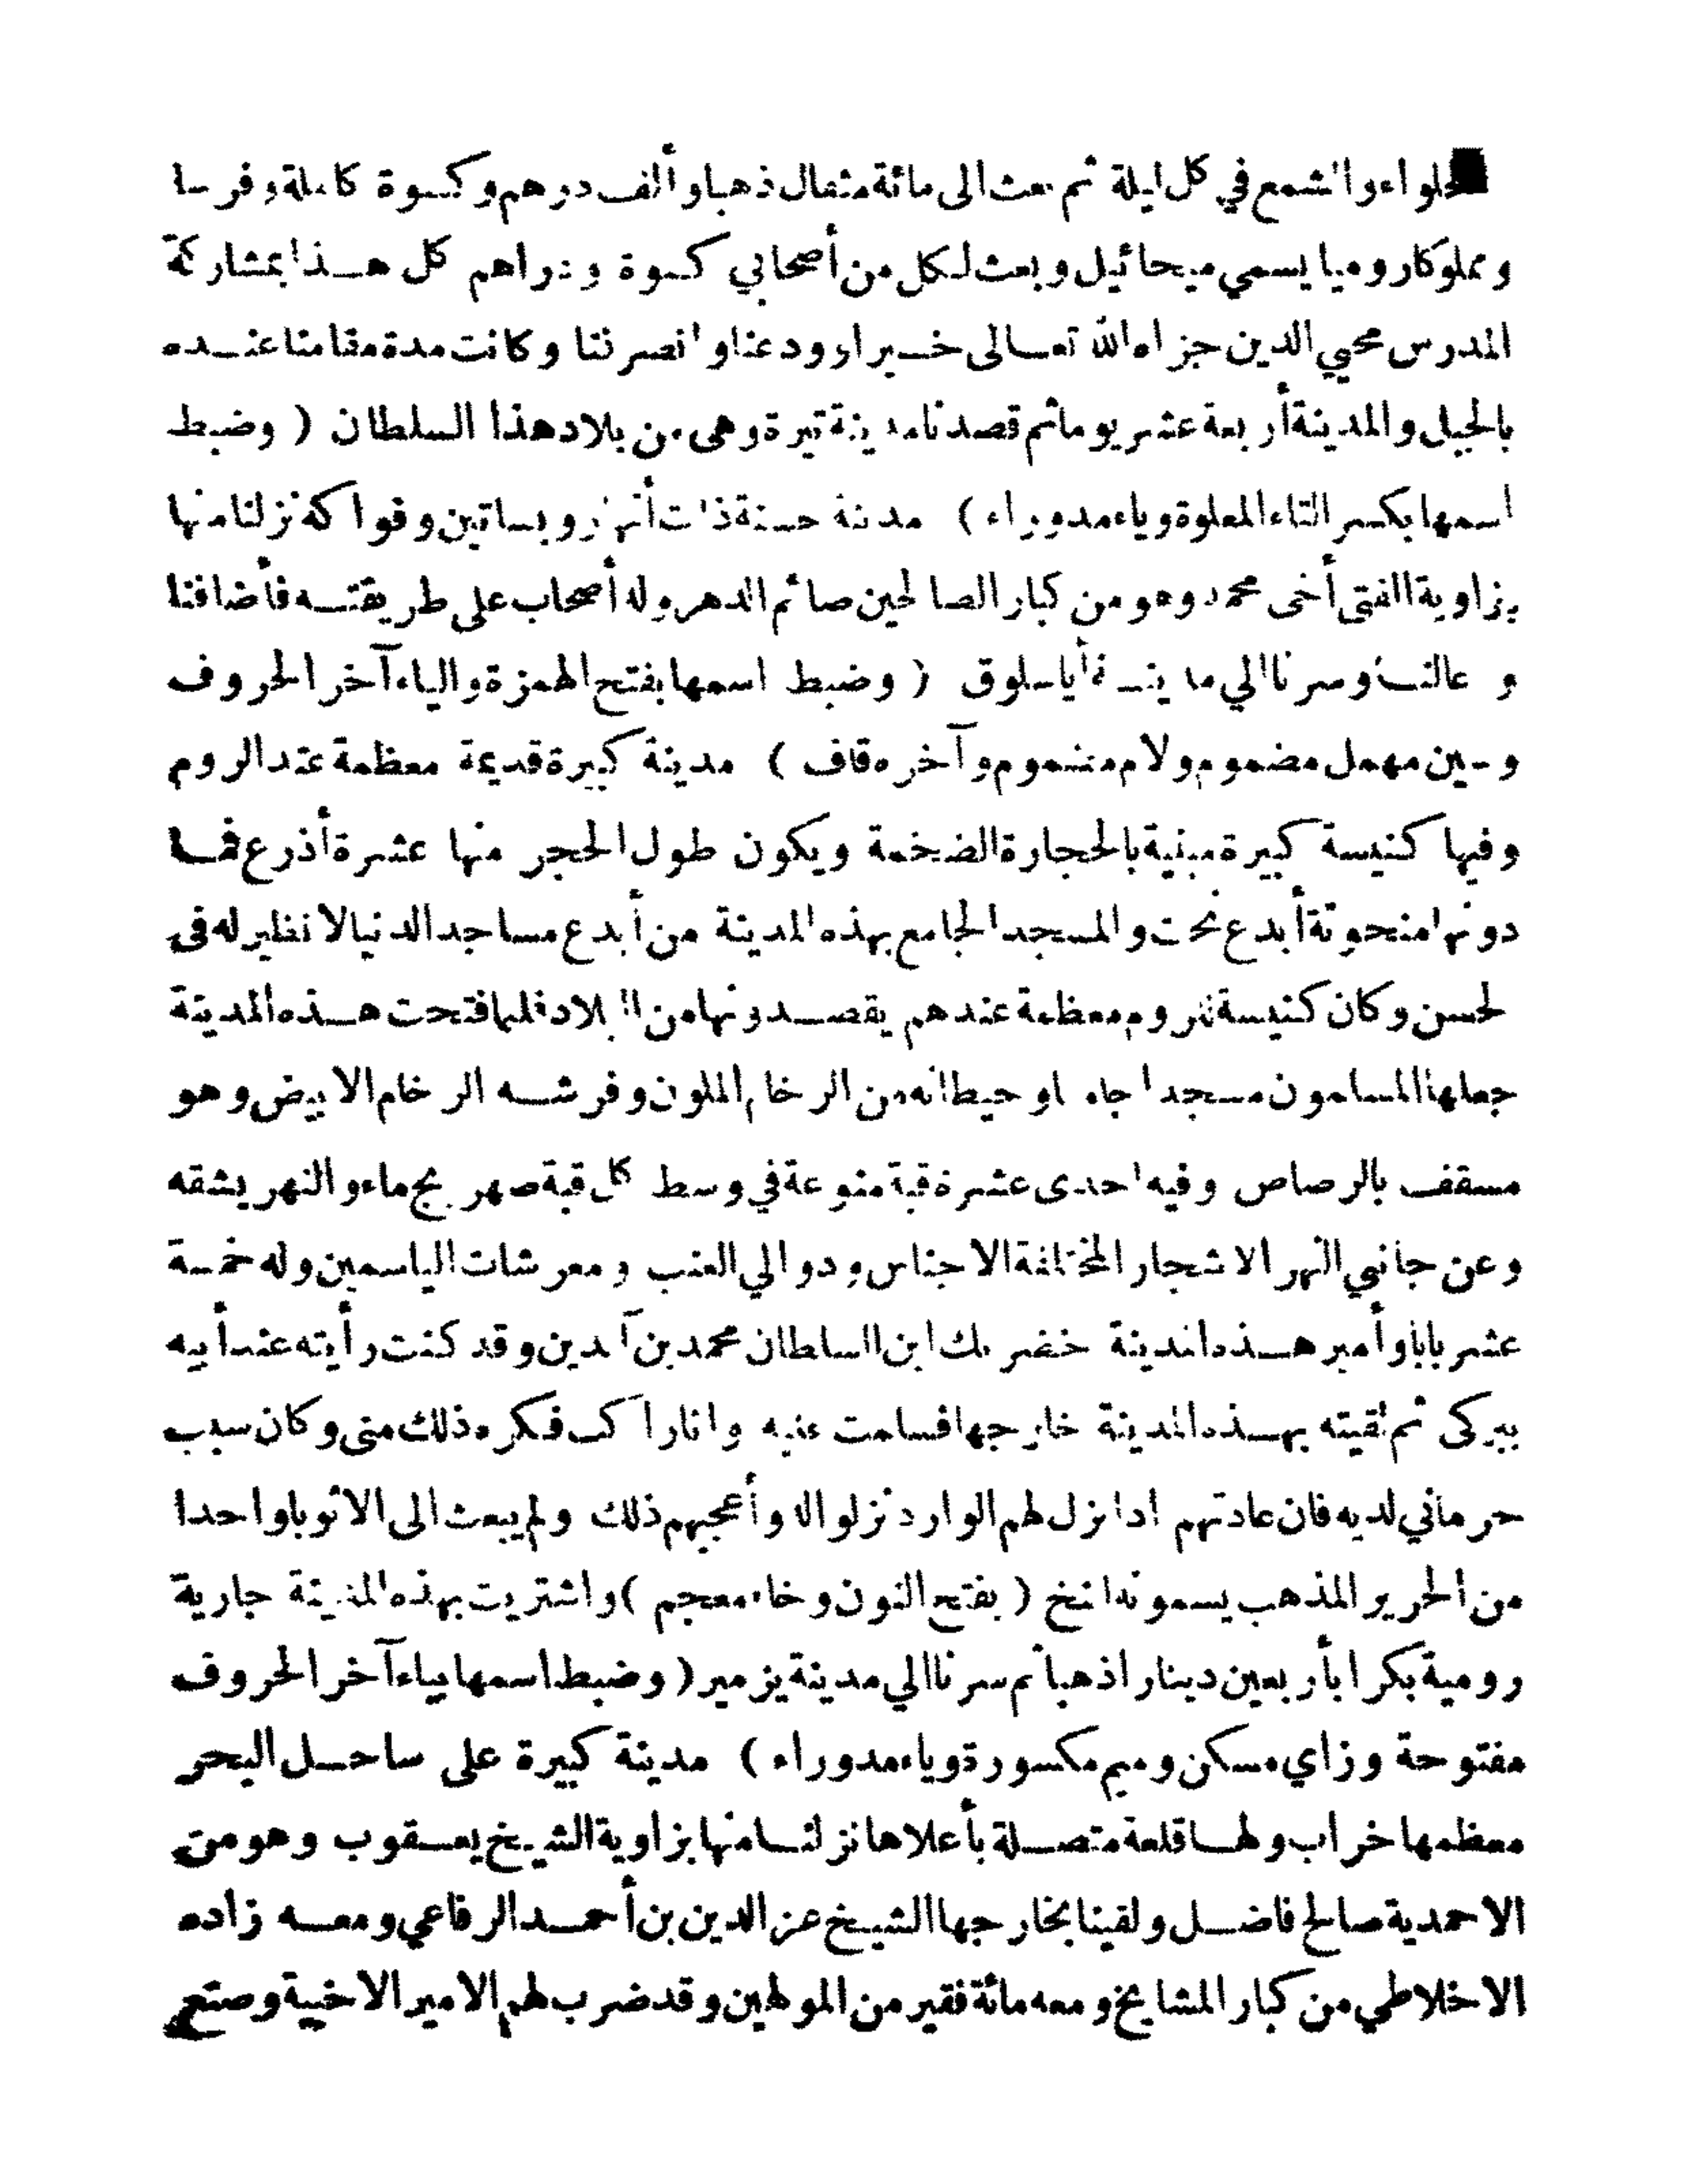 والحلواء والشمع في كل ليلة ثم بعث الى مائة مثقال ذهبا وألف درهم وكسوة كاملة وفرسا
ومملوكا روميا يسمي ميحائيل وبعث لكل من أصحابي كسوة ودراهم كل هذا بمشاركة
المدرس محيي الدين جزاه الله تعالى خيرا وودعنا وانصرفنا وكانت مدة مقامنا عنده
بالجبل والمدينة أربعة عشر يوما ثم قصدنا مدينة تيرة وهى من بلاد هذا السلطان ( وضبط
اسمها بكسر التاء المعلوة وياء مد وراء ) مدينة حسنة ذات أنهار وبساتين وفواكه نزلنا منها
بزاوية الفتى أخى محمد وهو من كبار الصالحين صائم الدهر وله أصحاب على طريقته فأضافنا
و عالنا وسرنا الي مدينة أياسلوق ( وضبط اسمها بفتح الهمزة والياء آخر الحروف
وسين مهمل مضموم ولام مضموم وآخره قاف ) مدينة كبيرة قديمة معظمة عند الروم
وفيها كنيسة كبيرة مبنية بالحجارة الضخمة ويكون طول الحجر منها عشرة أذرع فما
دونها منحوتة أبدع نحت والمسجد الجامع بهذه المدينة من أبدع مساجد الدنيا لا نظير له فى
لحسن وكان كنيسة للروم معظمة عندهم يقصدونها من البلاد فلما فتحت هذه المدينة
جعلها المسلمون مسجدا جامعا وحيطانه من الرخام الملون وفرشه الرخام الابيض وهو
مسقف بالرصاص وفيه احدى عشرة قبة منوعة في وسط كل قبة صهريج ماء والنهر يشقه
وعن جانبي النهر الاشجار المختلفة الاجناس ودوالي العنب ومعرشات الياسمين وله خمسة
عشر بابا وأمير هذه المدينة خضر بك ابن السلطان محمد بن آيدين وقد كنت رأيته عند أبيه
ببركى ثم لقيته بهذه المدينة خارجها فسلمت عليه وانا راكب فكره ذلك منى وكان سبب
حرماني لديه فان عادتهم اذا نزل لهم الوارد نزلوا له وأعجبهم ذلك ولم يبعث الى الا ثوبا واحدا
من الحرير المذهب يسمونه النخ ( بفتح النون وخاء معجم ) واشتريت بهذه المدينة جارية
رومية بكرا بأربعين دينارا ذهبا ثم سرنا الي مدينة يزمير ( وضبط اسمها بياء آخر الحروف
مفتوحة وزاي مسكن وميم مكسورة وياء مد وراء ) مدينة كبيرة على ساحل البحر
معظمها خراب ولها قلعة متصلة بأعلاها نزلنا منها بزاوية الشيخ يعقوب وهو من
الاحمدية صالح فاضل ولقينا بخارجها الشيخ عز الدين بن أحمد الرفاعي ومعه زاده
الاخلاطي من كبار المشايخ ومعه مائة فقير من المولهين وقد ضرب لهم الامير الاخبية وصنع